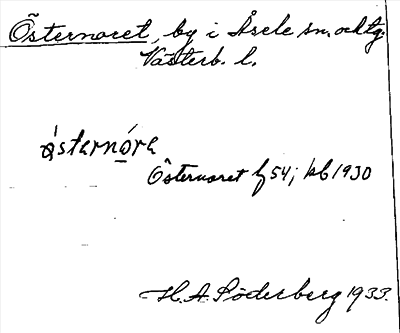 Östernoret, by i Åsele sn. och tg.
Västerb. l.
östernóre
Östernoret jb 54; kb 1930
H.A. Söderberg 1933.